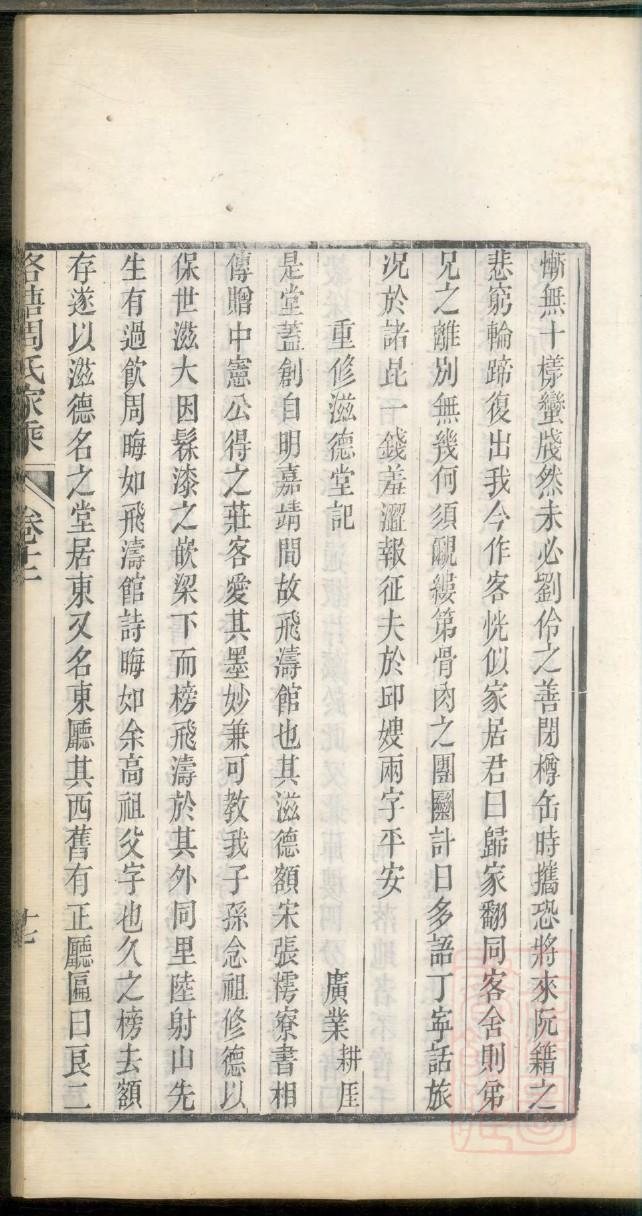 慚無十樣蠻牋然未必劉伶之善閉樽缶時攜恐將來阮籍之
悲窮輪蹄復出我今作客恍似家居君曰歸家翻同客舍則弟
兄之離別無幾何須覼縷第骨肉之團圞計日多語丁寧話旅
況於諸昆一錢羞澀報征夫於邱嫂兩字平安
重修滋德堂記 廣業 耕厓
是堂蓋創自明嘉靖間故飛濤館也其滋德額宋張樗寮書相
傳贈中憲公得之莊客愛其墨妙兼可教我子孫念祖修德以
保世滋大因髹漆之嵌梁下而榜飛濤於其外同里陸射山先
生有過飲周晦如飛濤館詩晦如余高祖父字也久之榜去額
存遂以滋德名之堂居東又名東廳其西舊有正廳匾曰良二
洛塘周氏家乘 卷十二 十七